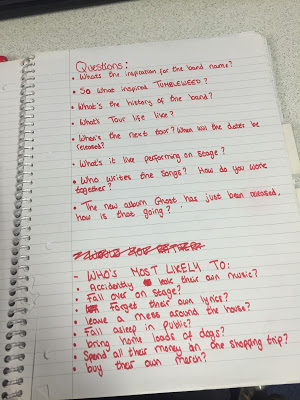 Questions:
• Whats the inspiration for the band name?
• So what inspired TUMBLEWEED?
• What's the history of the band?
• What's Tour life like?
• When's the next tour? When will the dates be
released?
• What's it like performing on stage?
• Who writes the songs? How do you work
together?
• The new album Ghost has just been released,
how is that going?
- WHO'S MOST LIKELY TO:
• Accidently leak their own music?
• Fall over on stage?
• forget their own lyrics?
• leave a mess around the house?
• Fall asleep in public?
• bring home loads of dogs?
• Spend all their money on one shopping trip?
• buy their own merch?